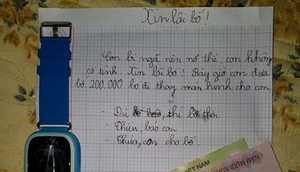 Xin lỗi bố!
Con bị ngã nên nó thế, con không
cố tình. Xin lỗi bố! Bây giờ con đưa
bố 200.000 bo đi thay màn hình cho con
- Dư thì bố
Thiếu, báo con.
- Thừa, con cho bố.
VIỆT NAM